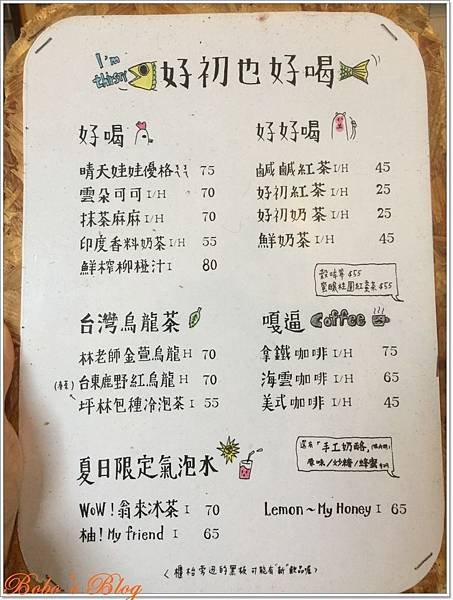 I'm thirsty
好初也好喝
好喝
晴天娃娃優格 75
雲朵可可 I/H 70
抹茶麻麻 I/H 70
印度香料奶茶 I/H 55
鮮榨柳橙汁 I 80
好好喝
鹹鹹紅茶 I/H 45
好初紅茶 I/H 25
好初奶茶 I/H 25
鮮奶茶 I/H 45
台灣烏龍茶
林老師金萱烏龍 H 70
台東鹿野紅烏龍 H 70
坪林包種冷泡茶 I 55
嘎逼 Coffee
拿鐵咖啡 I/H 75
海雲咖啡 I/H 65
美式咖啡 I/H 45
還有「手工奶酪」
原味/炒糖/蜂蜜
夏日限定氣泡水
WoW!翁來冰茶 I 70
柚!My friend I 65
Lemon~My Honey I 65
<櫃檯旁邊的黑板可能有新飲品喔>
Bobo's Blog